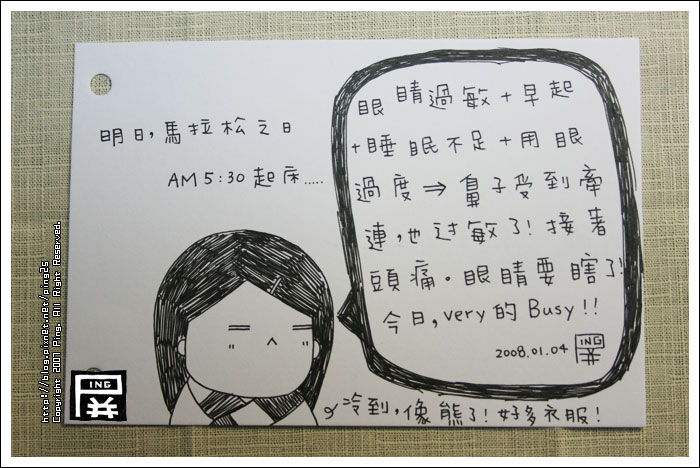 明日,馬拉松之日
AM 5:30 起床.....
眼睛過敏+早起
+睡眠不足+用眼
過度⇒鼻子受到牽
連,也过敏了!接著
頭痛。眼睛要瞎了!
今日,very的Busy!!
2008.01.04
ING
冷到,像熊了!好多衣服!
ING
http://blog.pixnet.net/ping25
Copyright 2007 Ping. All Right Reserved.